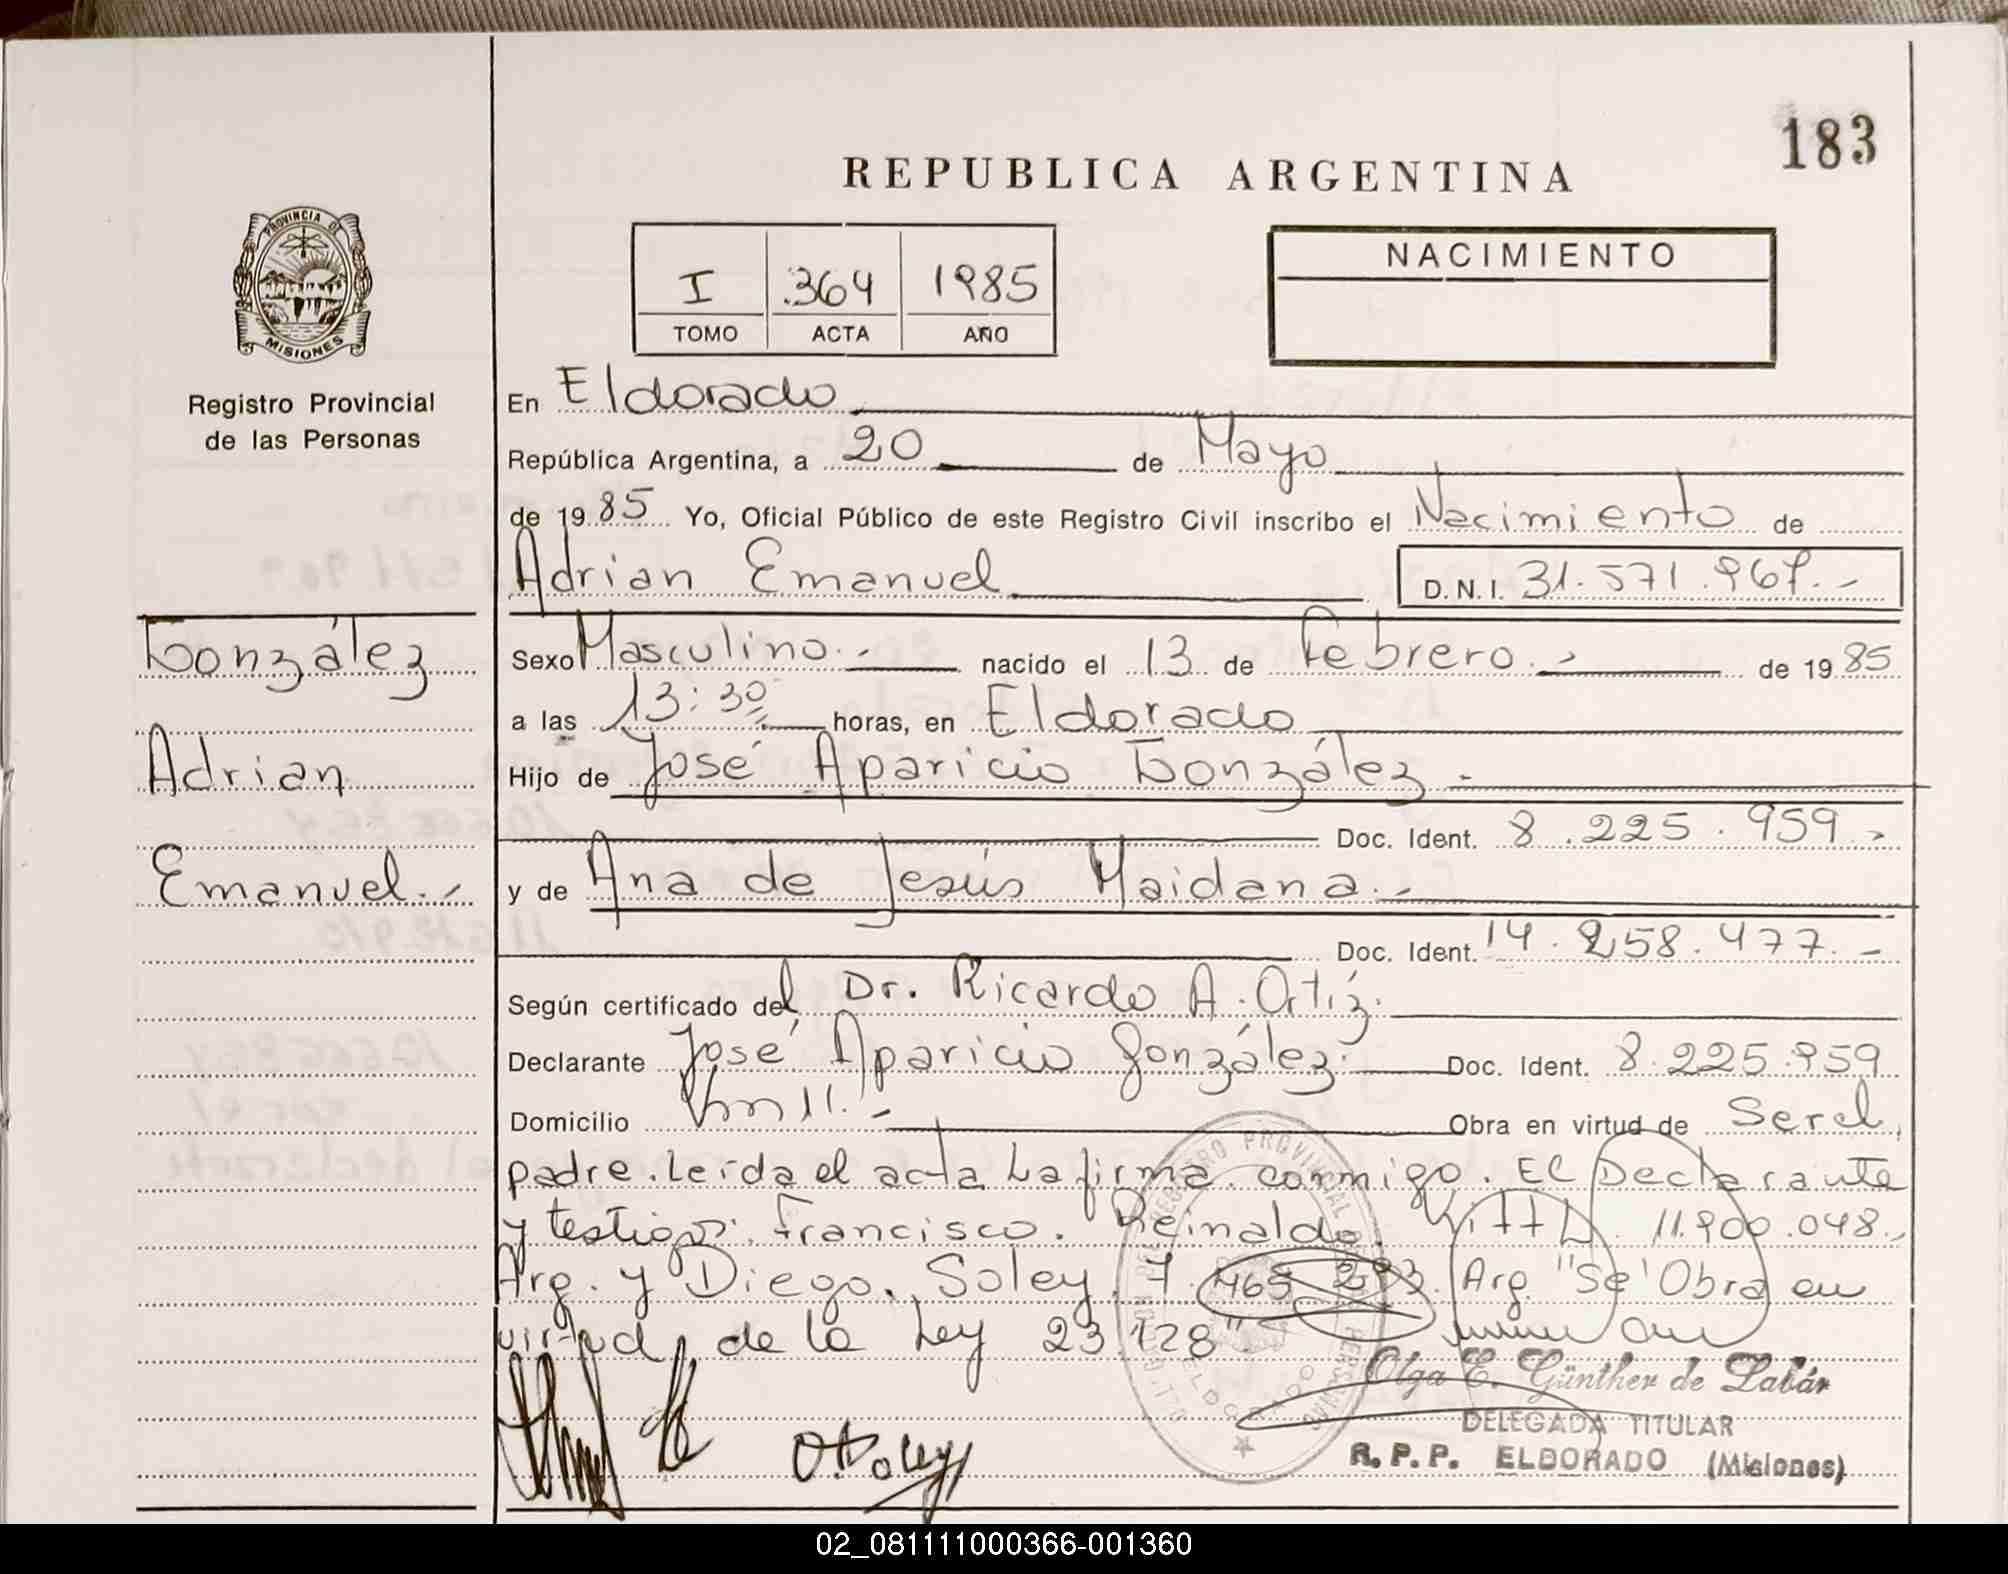 183
REPUBLICA ARGENTINA
PROVINCIA DE
MISIONES
Registro Provincial
de las Personas
I .364 1985
TOMO ACTA AÑO
NACIMIENTO
En Eldorado
República Argentina, a 20 de Mayo
de 1985 Yo, Oficial Público de este Registro Civil inscribo el Nacimiento de
Adrian Emanuel
D.N.I. 31.571.967.-
González
Adrian
Emanuel.-
Sexo Masculino.- nacido el 13 de Febrero.- de 1985
a las 13:30 horas, en Eldorado
Hijo de José Aparicio González.-
Doc. Ident. 8.225.959.-
y de Ana de Jesús Maidana.-
Doc. Ident. 14.258.477.-
Según certificado del Dr. Ricardo A. Ortíz.
Declarante José Aparicio González.- Doc. Ident. 8.225.959
Domicilio Km 11.- Obra en virtud de Ser el
padre. Leida el acta La firma conmigo. El Declarante
y testigos: Francisco. Reinaldo. 11.900.048.-
Arg. y Diego. Soley. 7. Arg. "Se Obra en
virtud, de la Ley 23.128"
Olga E. Günther de Labár
DELEGADA TITULAR
R.P.P. ELDORADO (Misiones)
02_081111000366-001360